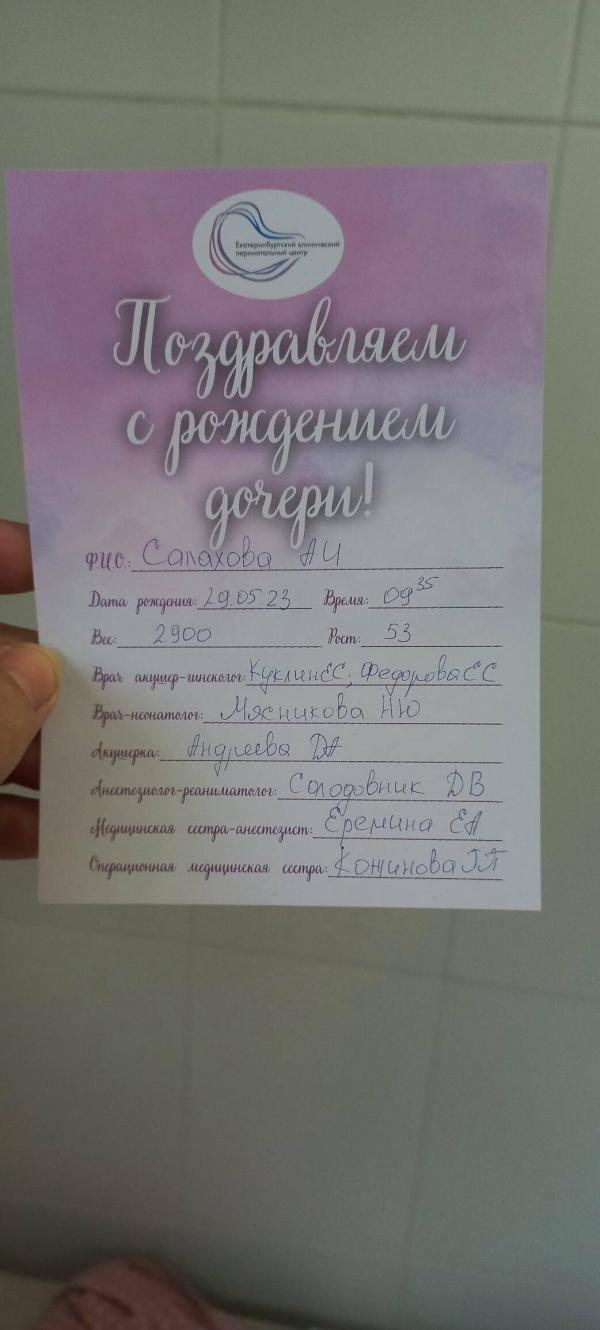 Екатеринбургский клинический
перинатальный центр
Поздравляем
с рождением
дочери!
Ф.И.О.: Салахова АИ
Дата рождения: 29.05.23 Время: 09 35
Вес: 2900 Рост: 53
Врач акушер-гинеколог: Куклин ЕС, Федорова ЕС
Врач-неонатолог: Мясникова НЮ
Акушерка: Андреева DА
Анестезиолог-реаниматолог: Солодовник ДВ
Медицинская сестра-анестезист: Еремина ЕА
Операционная медицинская сестра: Кожинова ГП